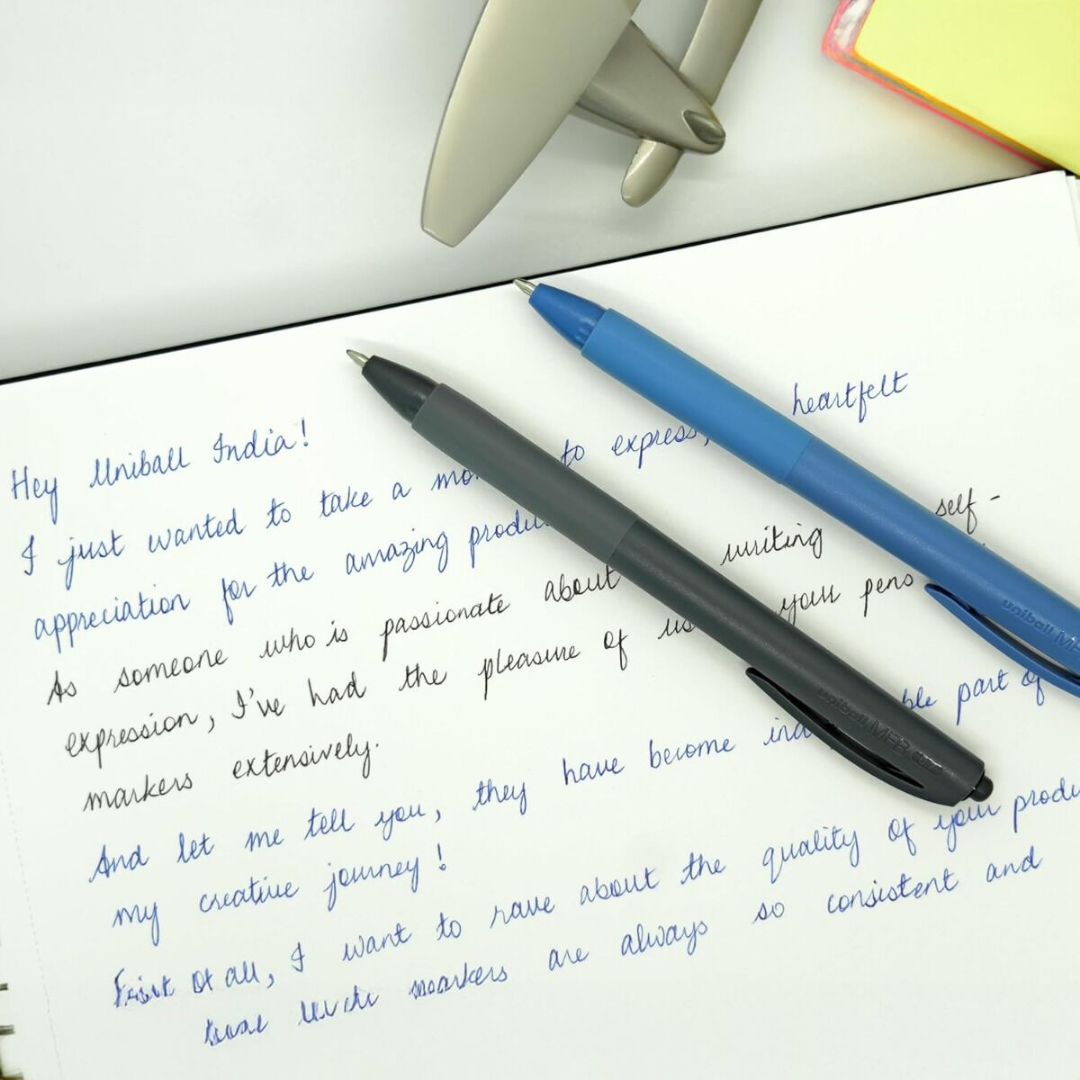 Hey Uniball India!
I just wanted to take a mo to express, heartfelt
appreciation for the amazing produ
As someone who is passionate about writing self-
expression, I've had the pleasure of us your pens
markers extensively.
And let me tell you, they have become ind ble part of
my creative journey!
First of all, I want to rave about the quality of your produ
markers are always so consistent and
uniball MER
uniball ME